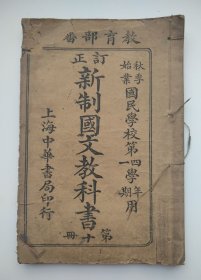 教育部審
秋季始業國民學校第四學年第一學期用
訂正
新制國文教科書
第十冊
上海中華書局印行